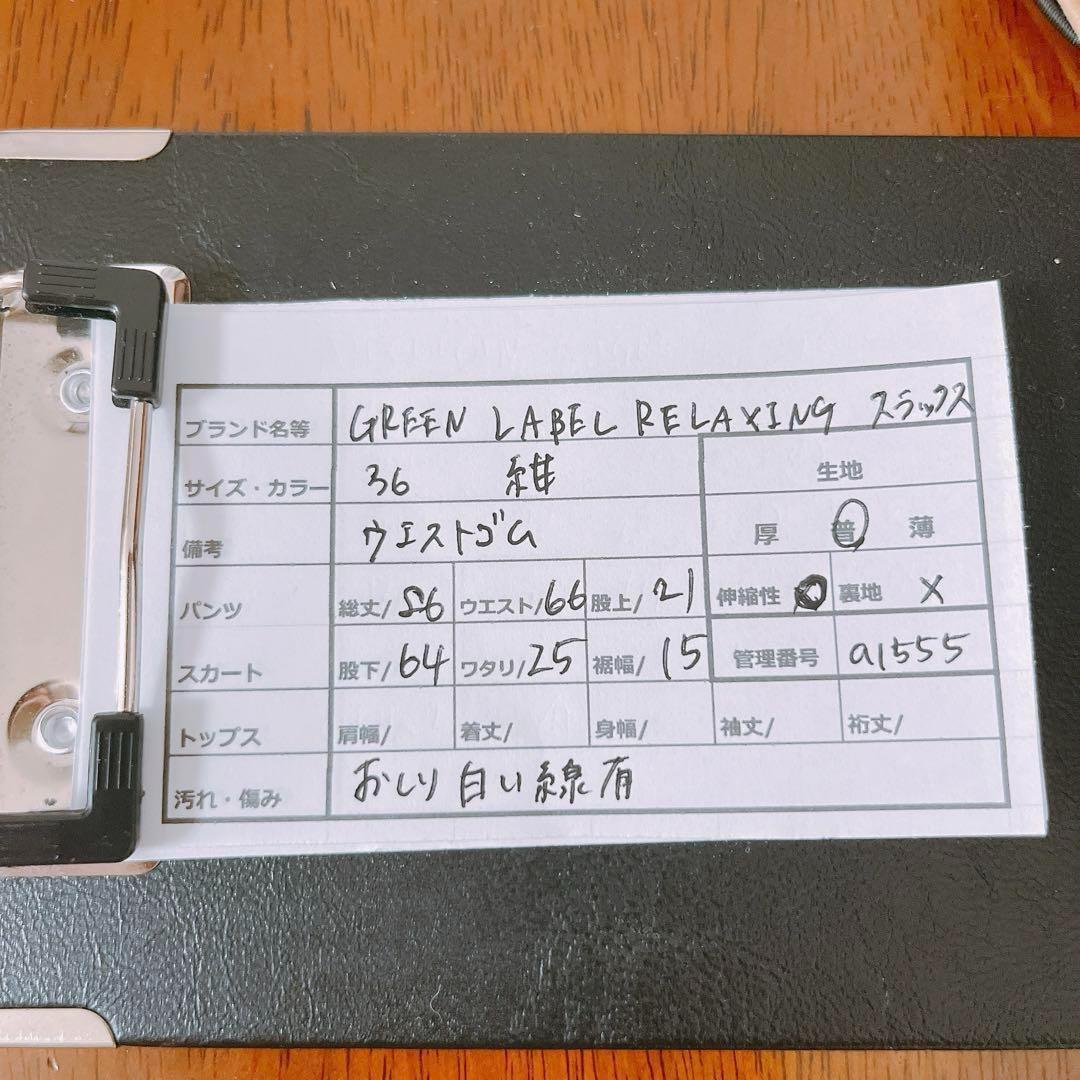 ブランド名等 GREEN LABEL RELAXING スラックス
サイズ・カラー 36 紺 生地
備考 ウエストゴム 厚 普 薄
パンツ 総丈/86 ウエスト/66 股上/21 伸縮性 裏地 ×
スカート 股下/64 ワタリ/25 裾幅/15 管理番号 a1555
トップス 肩幅/ 着丈/ 身幅/ 袖丈/ 裄丈/
汚れ・傷み おしり 白い線有